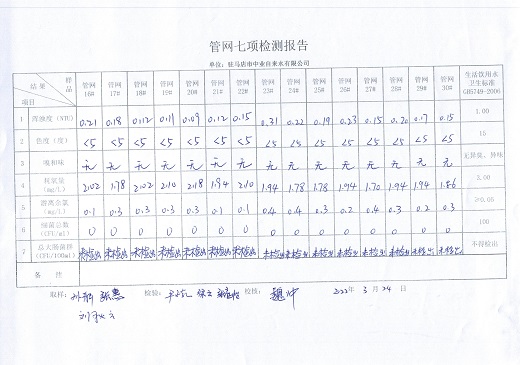 管网七项检测报告
单位：驻马店市中业自来水有限公司
结果 样品 项目 管网16# 管网17# 管网18# 管网19# 管网20# 管网21# 管网22# 管网23# 管网24# 管网25# 管网26# 管网27# 管网28# 管网29# 管网30# 生活饮用水卫生标准GB5749-2006
1 浑浊度（NTU） 0.21 0.18 0.12 0.11 0.09 0.12 0.15 0.31 0.22 0.19 0.23 0.15 0.20 0.17 0.15 1.00
2 色度（度） <5 <5 <5 <5 <5 <5 <5 <5 <5 <5 <5 <5 <5 <5 <5 15
3 嗅和味 无 无 无 无 无 无 无 无 无 无 无 无 无 无 无 无异臭、异味
4 耗氧量（mg/L） 2.02 1.78 2.02 2.10 2.18 1.94 2.10 1.94 1.78 1.78 1.94 1.70 1.94 1.94 1.86 3.00
5 游离余氯（mg/L） 0.1 0.3 0.3 0.3 0.3 0.1 0.1 0.4 0.4 0.3 0.2 0.4 0.3 0.2 0.3 ≥0.05
6 细菌总数（CFU/ml） 0 0 0 0 0 0 0 0 0 0 0 0 0 0 0 100
7 总大肠菌群（CFU/100ml） 未检出 未检出 未检出 未检出 未检出 未检出 未检出 未检出 未检出 未检出 未检出 未检出 未检出 未检出 未检出 不得检出
备 注
取样： 检验： 检核： 2022年 3月 24日